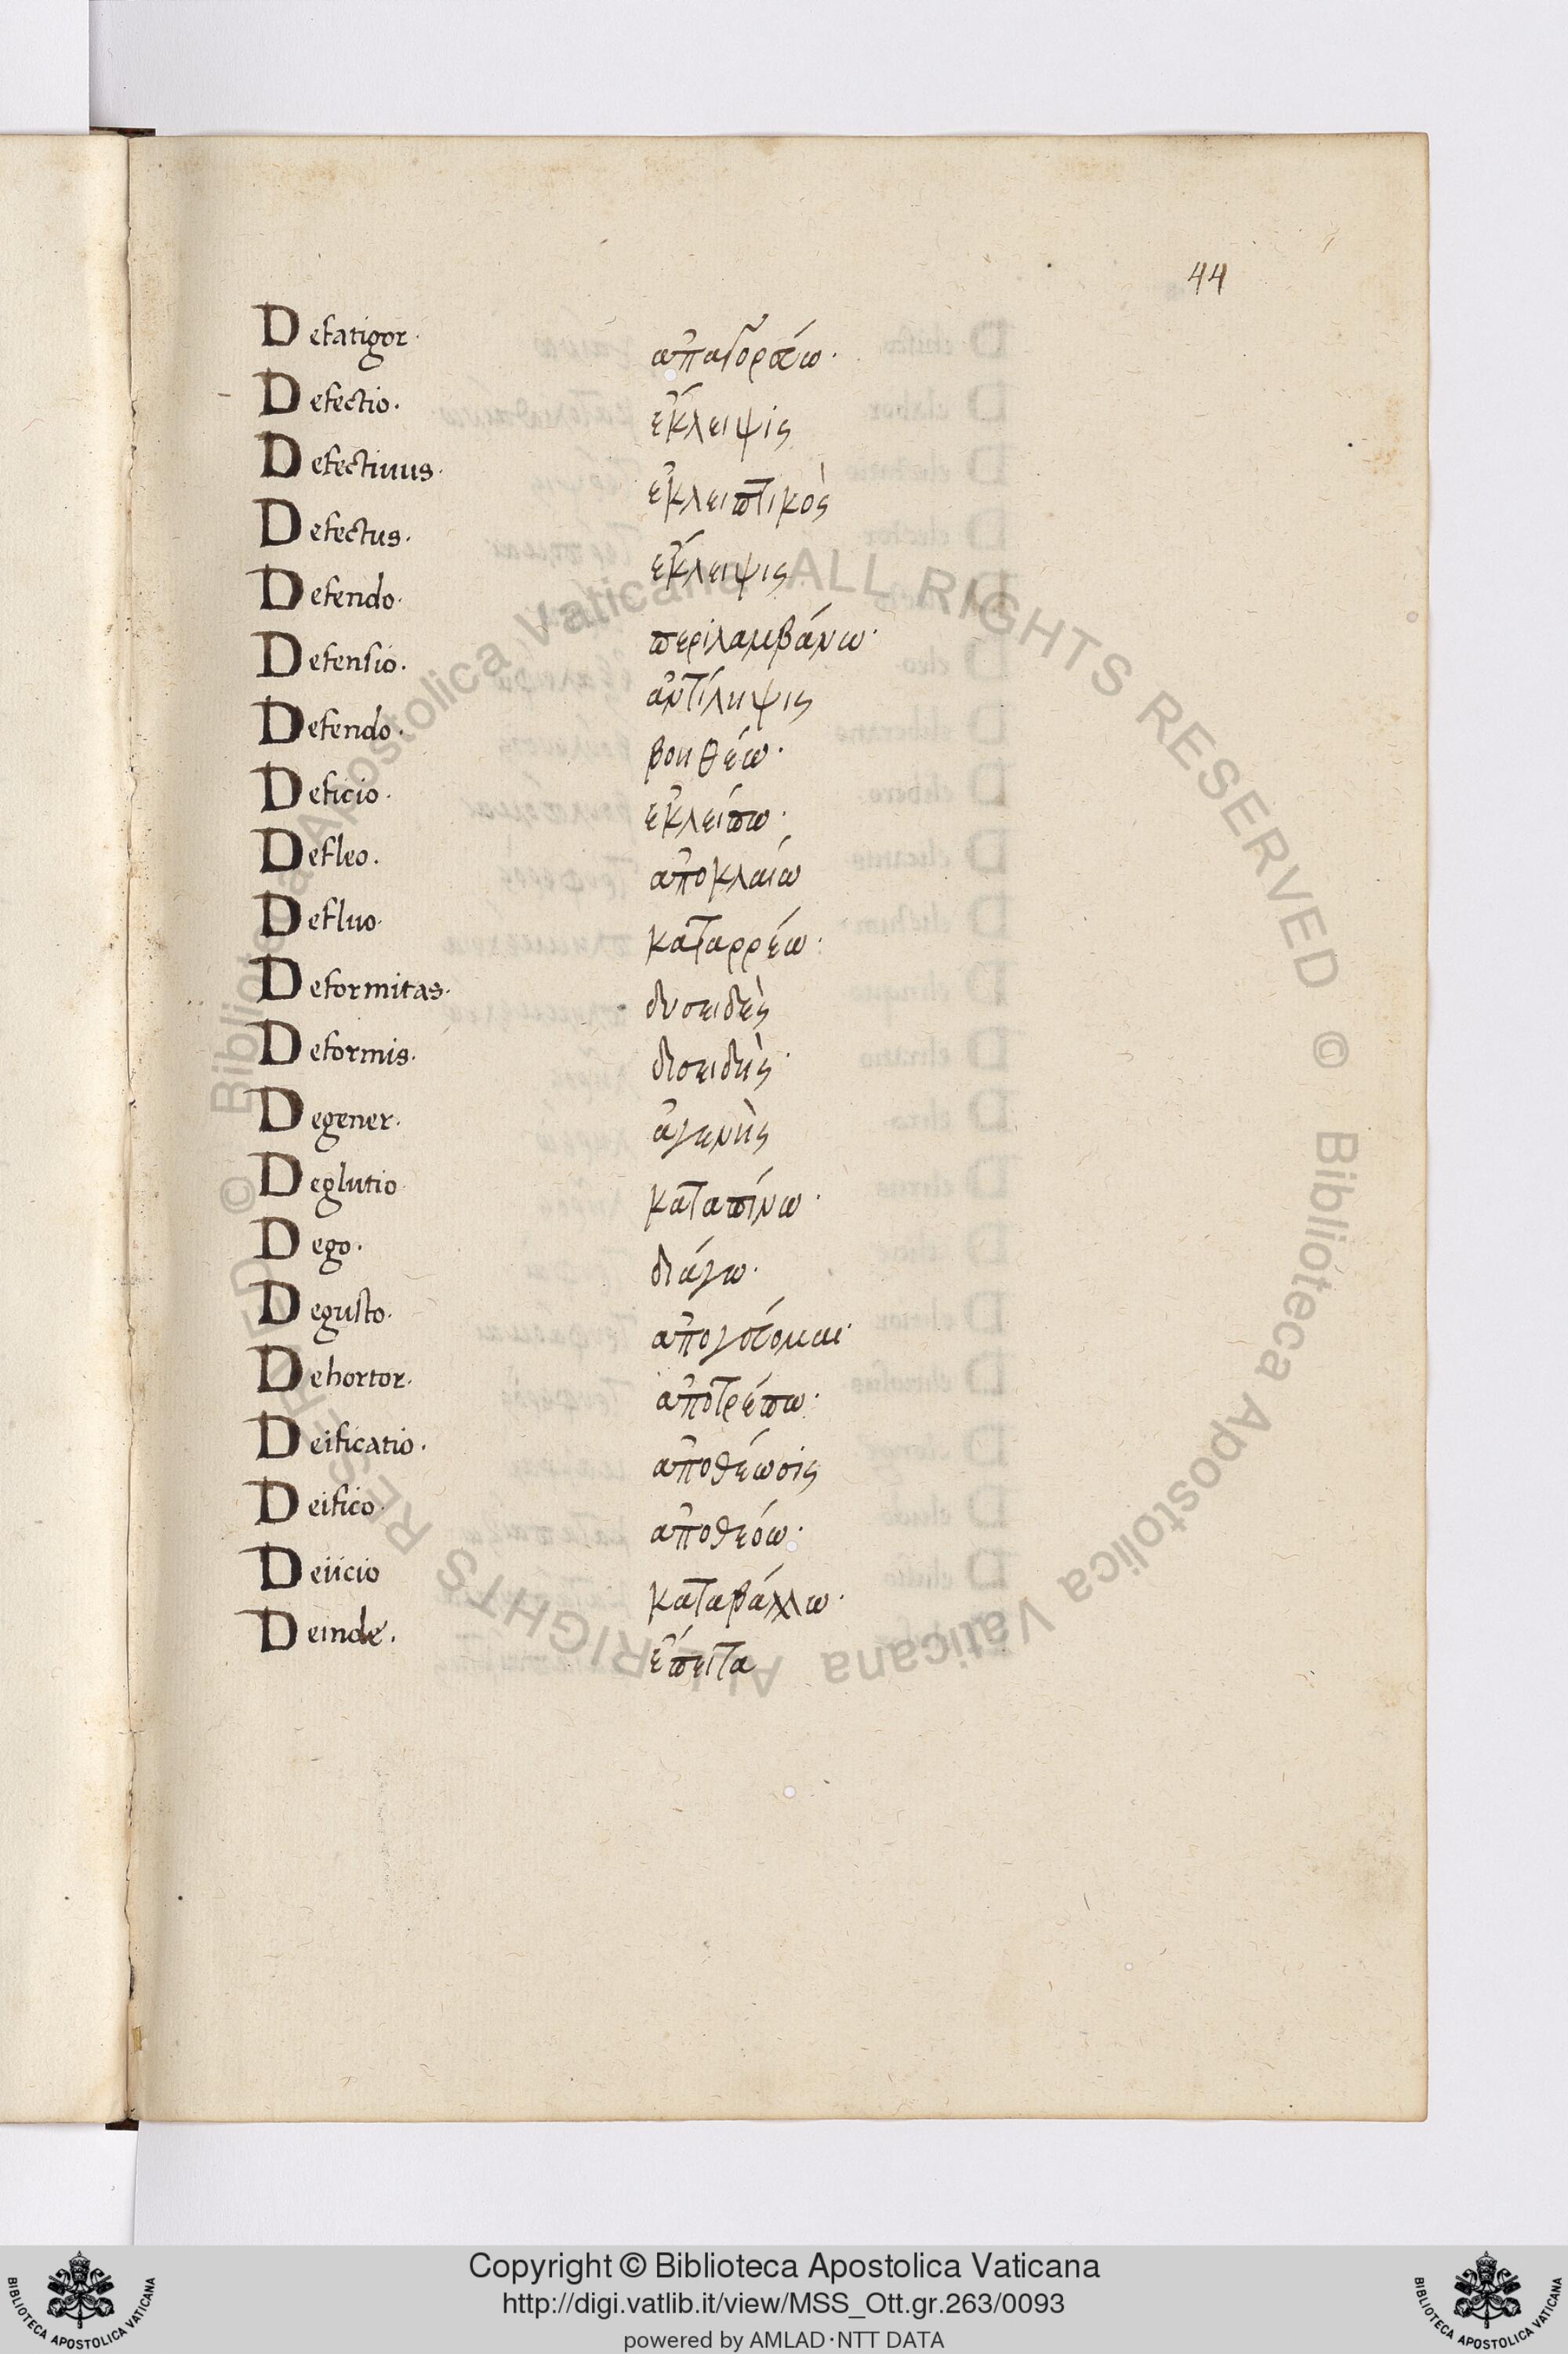 44
Defatigor· ἀπαγορεύω·
Defectio. ἔκλειψις
Defectiuus· ἐκλειπτικὸς
Defectus. ἔκλειψις
Defendo· περιλαμβάνω·
Defensio. ἀντίληψις
Defendo· βοηθέω·
Deficio· ἐκλείπω·
Defleo. ἀποκλαίω
Defluo· καταρρέω·
Deformitas· δυσειδὴς
Deformis· δισειδὴς·
Degener· ἀγενὴς
Deglutio καταπίνω·
Dego· διάγω·
Degusto· ἀπογεύομαι·
Dehortor· ἀποτρέπω·
Deificatio· ἀποθέωσις
Deifico· ἀποθεόω·
Deiicio καταβάλλω·
Deinde. ἔπειτα
Copyright © Biblioteca Apostolica Vaticana
http://digi.vatlib.it/view/MSS_Ott.gr.263/0093
powered by AMLAD·NTT DATA
BIBLIOTECA APOSTOLICA VATICANA
BIBLIOTECA APOSTOLICA VATICANA
© Biblioteca Apostolica Vaticana ALL RIGHTS RESERVED
© Biblioteca Apostolica Vaticana ALL RIGHTS RESERVED